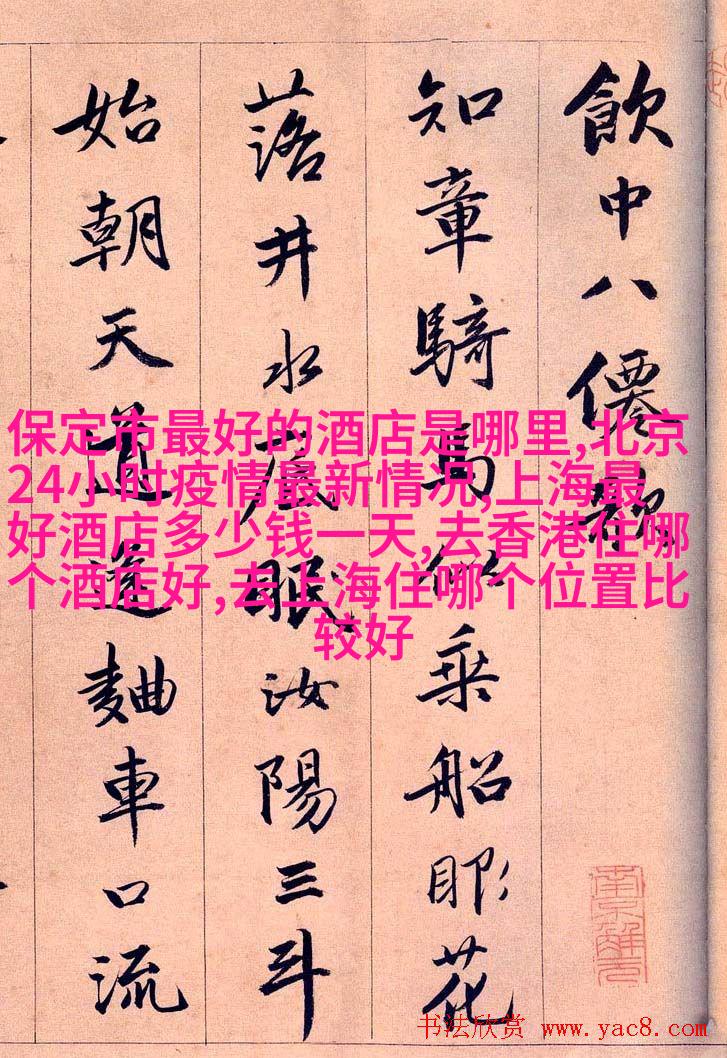 飲中八僊歌
知章騎馬似乘船眼花
落井水底眠汝陽三斗
始朝天道逢麯車口流
保定市最好的酒店是哪里,北京
24小时疫情最新情况,上海最
好酒店多少钱一天,去香港住哪
个酒店好,去上海住哪个位置比
较好
南京解元
书法欣赏 www.yac8.com